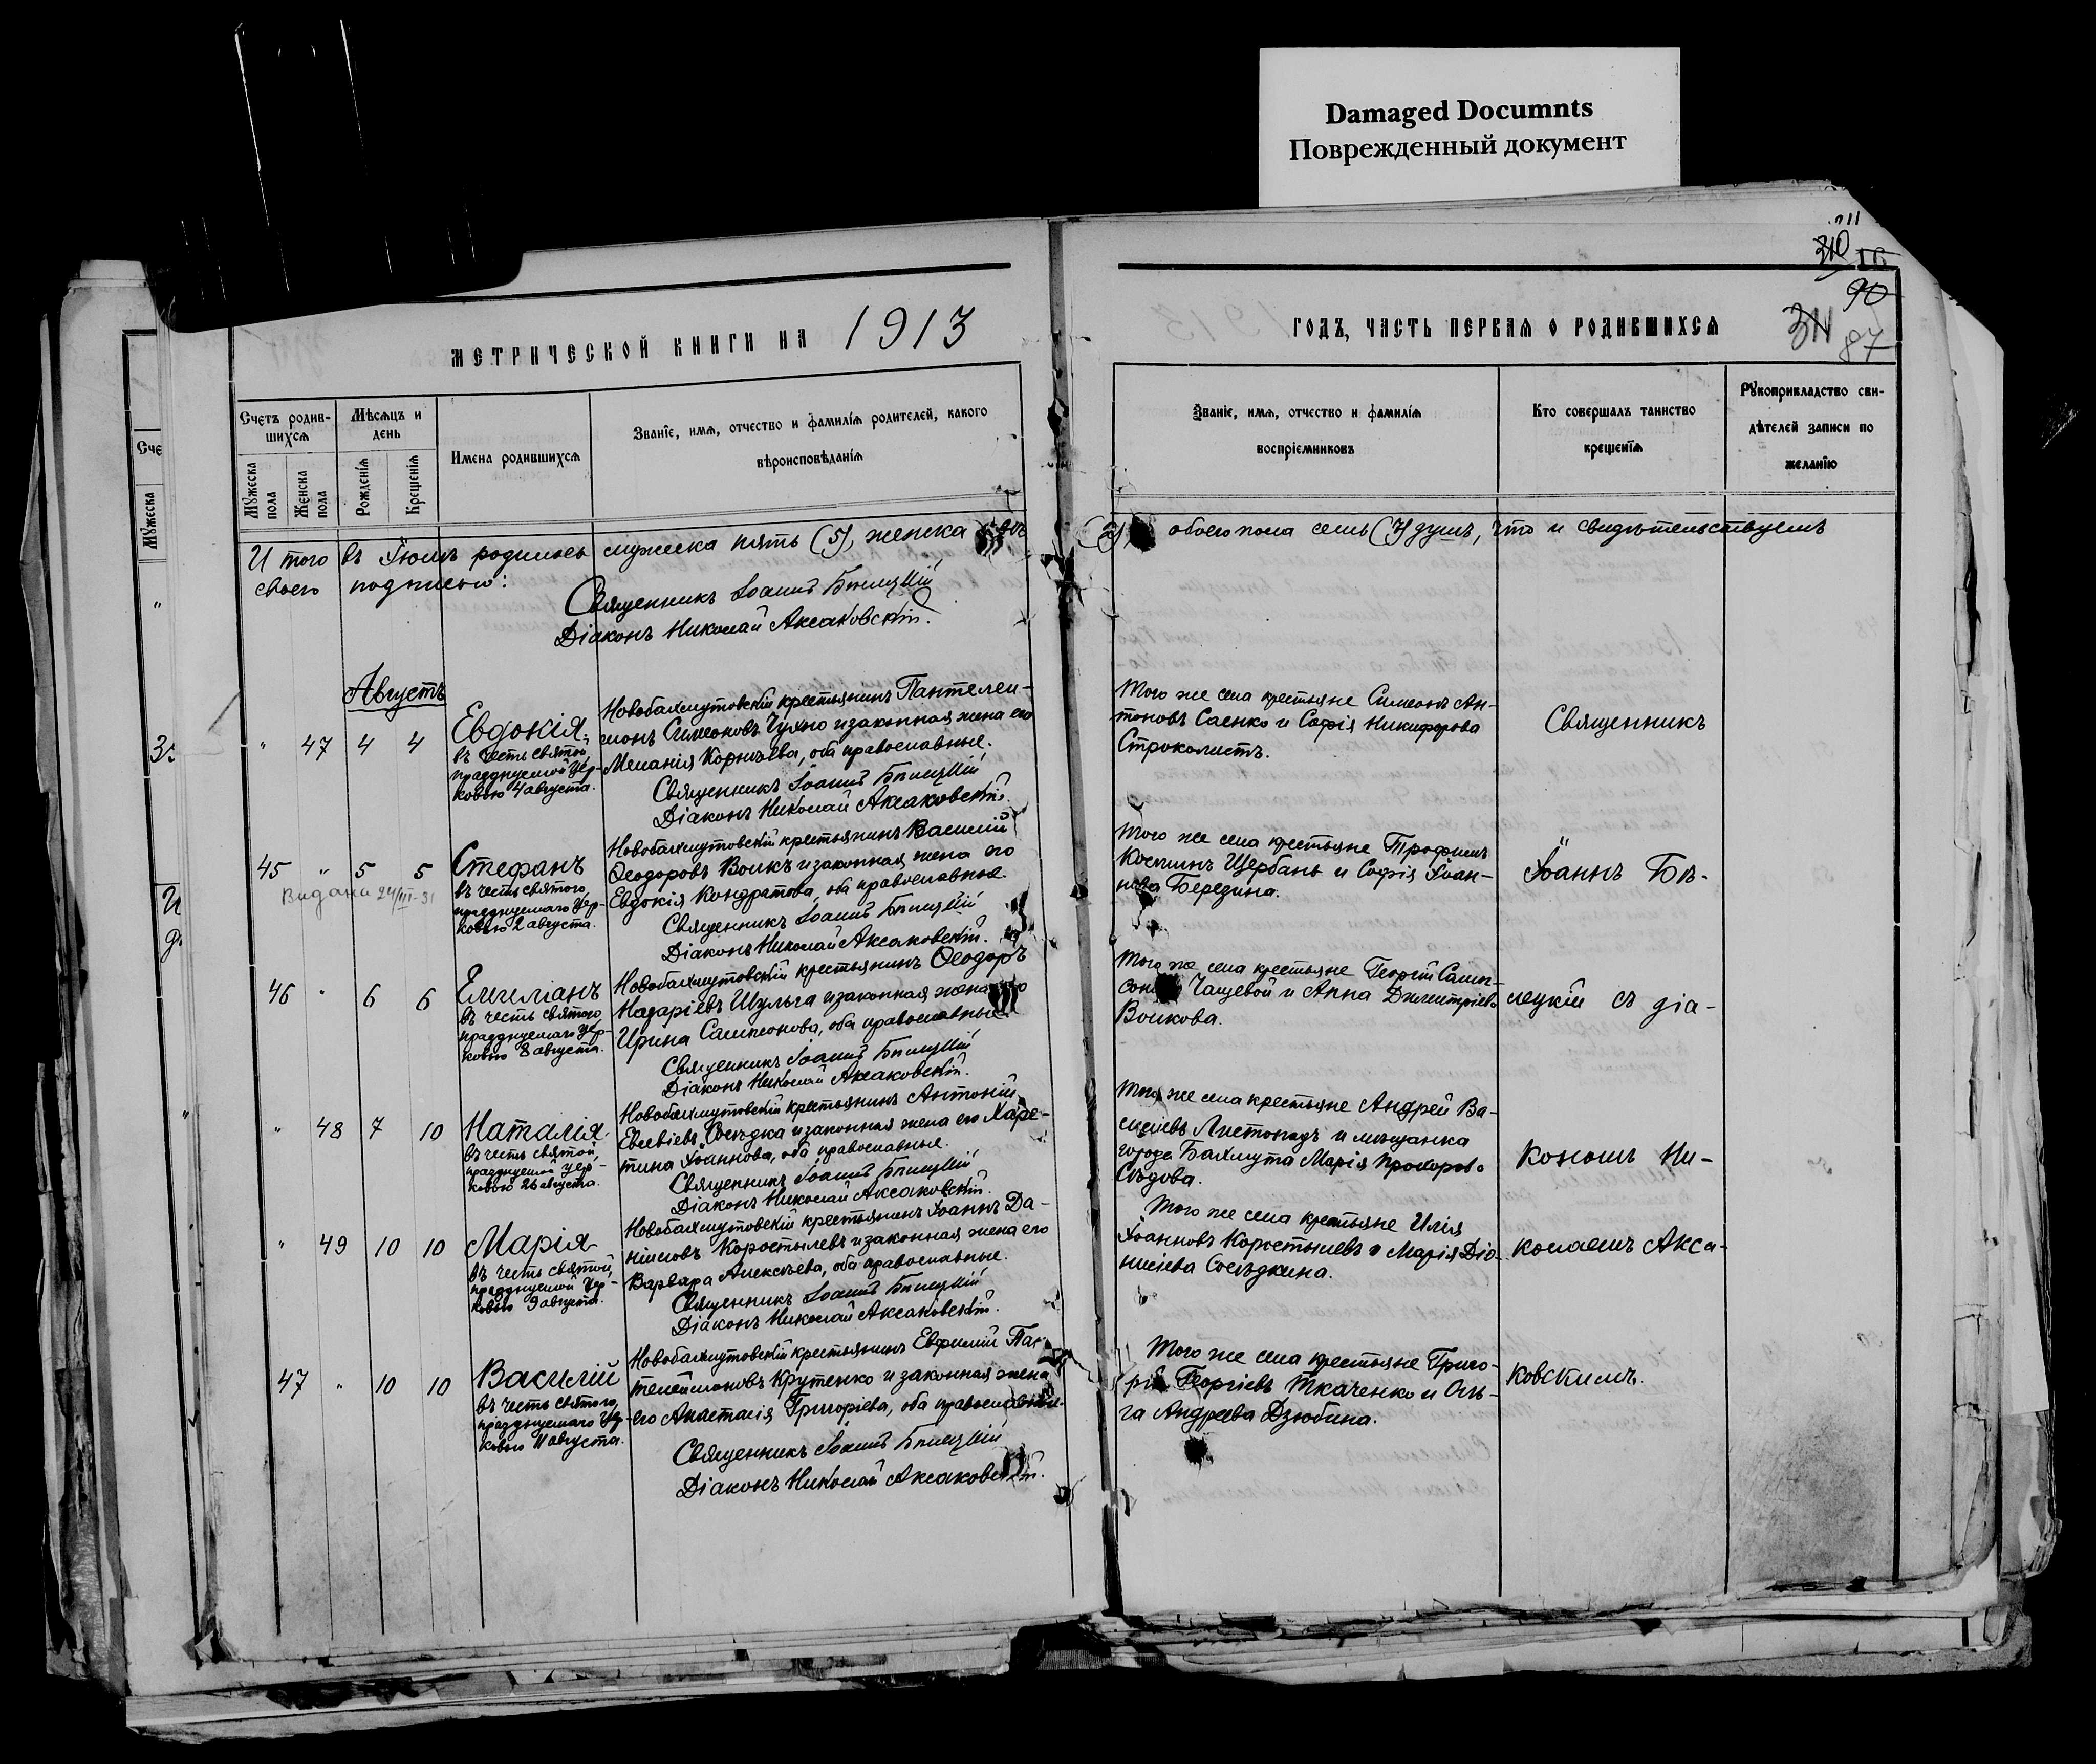 Damaged Documnts
Поврежденный документ
311
310
90
311
87
МЕТРИЧЕСКОЙ КНИГИ НА 1913
ГОДЪ, ЧАСТЬ ПЕРВАЯ О РОДИВШИХСЯ
Счетъ родив-
шихся
Мужеска пола
Женска пола
Мѣсяцъ и
день
Рожденія
Крещенія
Имена родившихся
Званіе, имя, отчество и фамилія родителей, какого
вѣроисповѣданія
Званіе, имя, отчество и фамилія
воспріемниковъ
Кто совершалъ таинство
крещенія
Рукоприкладство сви-
дѣтелей записи по
желанію
Сче
Мужеска
И того въ Іюлѣ родилось мужеска пять (5), женска
(2) обоего пола семь (7) душъ, что и свидѣтельствуемъ
своею подписью:
Священникъ Іоаннъ Бѣлецкій
Діаконъ Николай Аксаковскій.
Августъ
" 47 4 4 Евдокія,
въ честь святой
празднуемой цер-
ковью 4 августа.
Новобахмутовскій крестьянинъ Пантелеи-
монъ Симеоновъ Чухно и законная жена его
Меланія Корнѣева, оба православные.
Священникъ Іоаннъ Бѣлецкій
Діаконъ Николай Аксаковскій.
Того же села крестьяне Симеонъ Ан-
тоновъ Саенко и Софія Никифорова
Строколистъ.
Священникъ
45 " 5 5 Стефанъ
Видана 24/III-31
въ честь святого,
празднуемаго цер-
ковью 2 августа.
Новобахмутовскій крестьянинъ Василій
Ѳеодоровъ Волкъ и законная жена его
Евдокія Кондратова, оба православные.
Священникъ Іоаннъ Бѣлецкій
Діаконъ Николай Аксаковскій.
Того же села крестьяне Трофимъ
Косминъ Щербань и Софія Іоан-
нова Бередина.
Іоаннъ Бѣ-
46 " 6 6 Емиліанъ
въ честь святого
празднуемаго цер-
ковью 8 августа.
Новобахмутовскій крестьянинъ Ѳеодоръ
Назаріевъ Шульга и законная жена его
Ирина Сампсонова, оба православные
Священникъ Іоаннъ Бѣлецкій
Діаконъ Николай Аксаковскій.
Того же села крестьяне Георгій Самп-
соновъ Чащевой и Анна Димитріева
Волкова.
лецкій съ діа-
" 48 7 10 Наталія
въ честь святой,
празднуемой цер-
ковью 26 августа.
Новобахмутовскій крестьянинъ Антоній
Евсевіевъ Сосѣдка и законная жена его Хари-
тина Іоаннова, оба православные.
Священникъ Іоаннъ Бѣлецкій
Діаконъ Николай Аксаковскій.
Того же села крестьяне Андрей Ва-
сильевъ Листопадъ и мѣщанка
города Бахмута Марія Прохорова
Сѣдова.
кономъ Ни-
" 49 10 10 Марія
въ честь святой,
празднуемой цер-
ковью 9 августа.
Новобахмутовскій крестьянинъ Іоаннъ Да-
ніиловъ Коростылевъ и законная жена его
Варвара Алексѣева, оба православные.
Священникъ Іоаннъ Бѣлецкій
Діаконъ Николай Аксаковскій.
Того же села крестьяне Илія
Іоанновъ Коростылевъ и Марія Діо-
нисіева Сосѣдкина.
колаемъ Акса-
47 " 10 10 Василій
въ честь святого,
празднуемаго цер-
ковью 11 августа.
Новобахмутовскій крестьянинъ Евфимій Пан-
телеимоновъ Крутенко и законная жена
его Анастасія Григорьева, оба православные.
Священникъ Іоаннъ Бѣлецкій
Діаконъ Николай Аксаковскій.
Того же села крестьяне Григо-
рій Георгіевъ Ткаченко и Оль-
га Андреева Дзюбина.
ковскимъ.